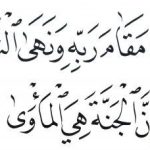 مَقَامَ رَبِّهِ وَنَهَى
الْجَنَّةَ هِيَ الْمَأْوَىٰ